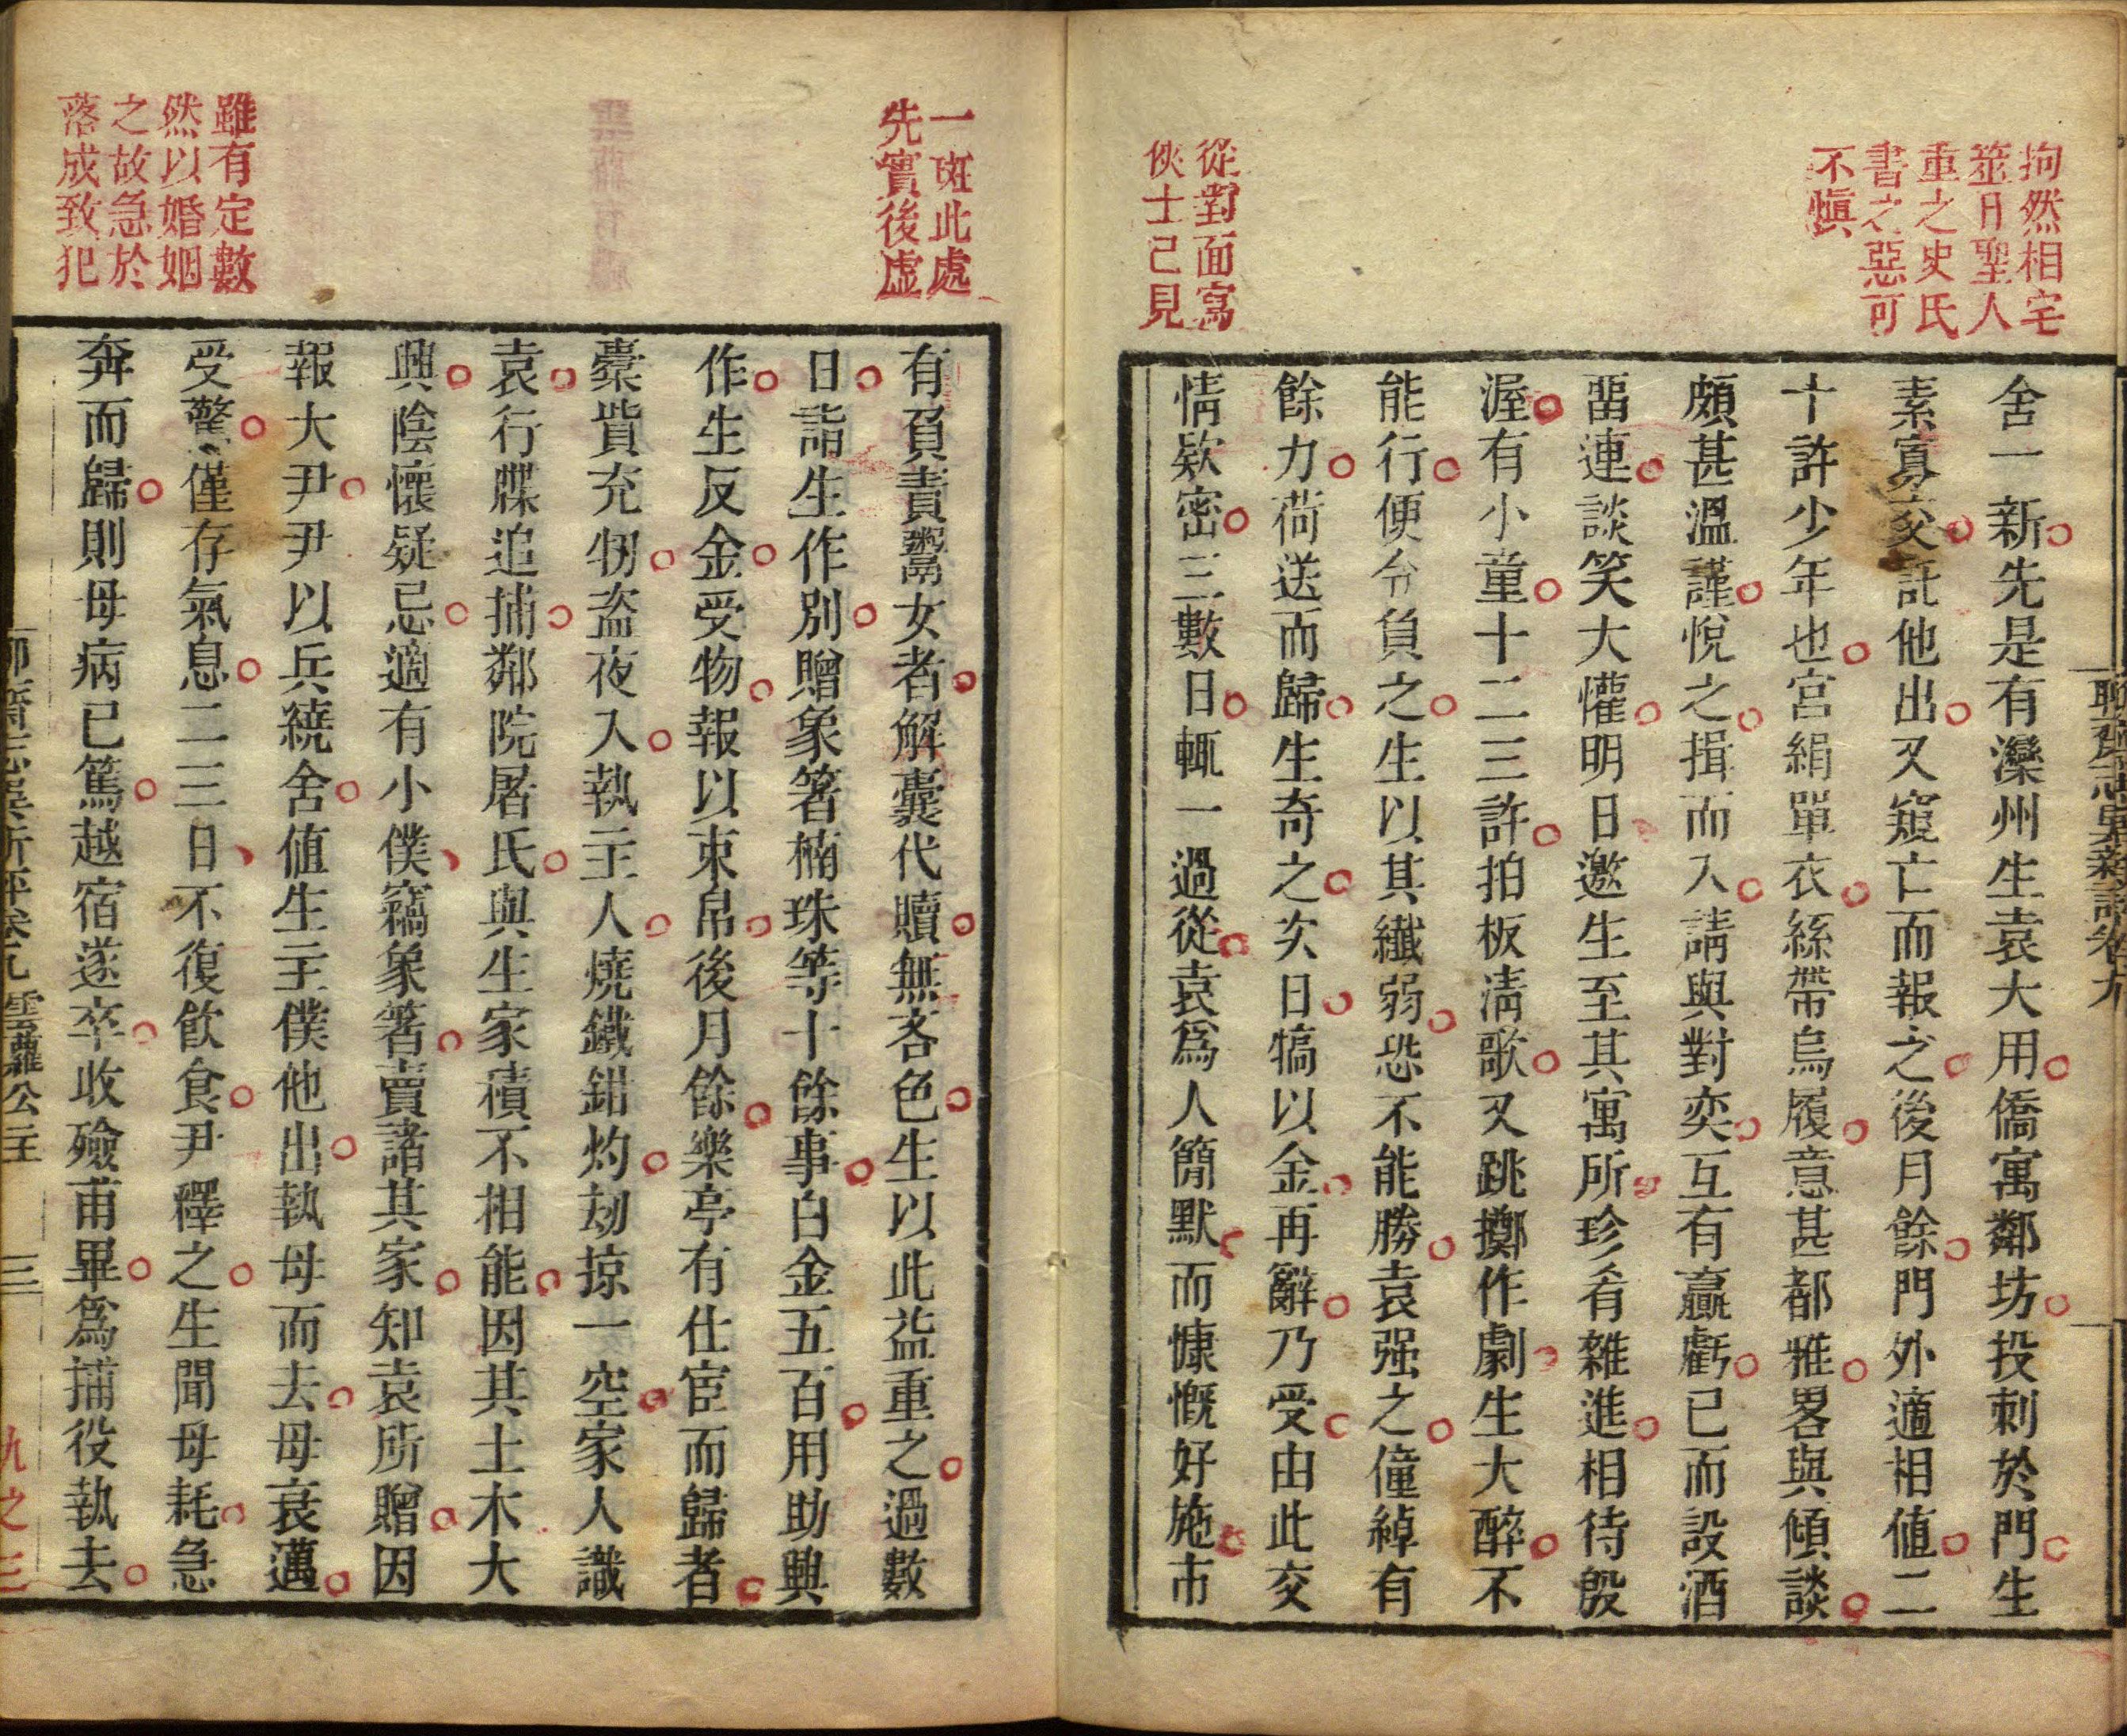 拘然相宅
筮日聖人
重之史氏
書之惡可
不愼
從對面寫
俠士已見
聊齋志異新評卷九
舍一新先是有灤州生袁大用僑寓鄰坊投刺於門生
素寡交託他出又窺亡而報之後月餘門外適相値二
十許少年也宮絹單衣絲帶烏履意甚都雅畧與傾談
頗甚溫謹悅之揖而入請與對奕互有贏虧已而設酒
畱連談笑大懽明日邀生至其寓所珍肴雜進相待殷
渥有小童十二三許拍板淸歌又跳擲作劇生大醉不
能行便令負之生以其纖弱恐不能勝袁强之僮綽有
餘力荷送而歸生奇之次日犒以金再辭乃受由此交
情欵密三數日輒一過從袁爲人簡默而慷慨好施市
一斑此處
先實後虛
雖有定數
然以婚姻
之故急於
落成致犯
有負責鬻女者解囊代贖無吝色生以此益重之過數
日詣生作別贈象箸楠珠等十餘事白金五百用助興
作生反金受物報以束帛後月餘樂亭有仕宦而歸者
橐貲充牣盜夜入執主人燒鐵鉗灼刼掠一空家人識
袁行牒追捕鄰院屠氏與生家積不相能因其土木大
興陰懷疑忌適有小僕竊象箸賣諸其家知袁所贈因
報大尹尹以兵繞舍値生主僕他出執母而去母衰邁
受驚僅存氣息二三日不復飮食尹釋之生聞母耗急
奔而歸則母病已篤越宿遂卒收殮甫畢爲捕役執去
聊齋志異新評卷九 雲蘿公主 三
九之三